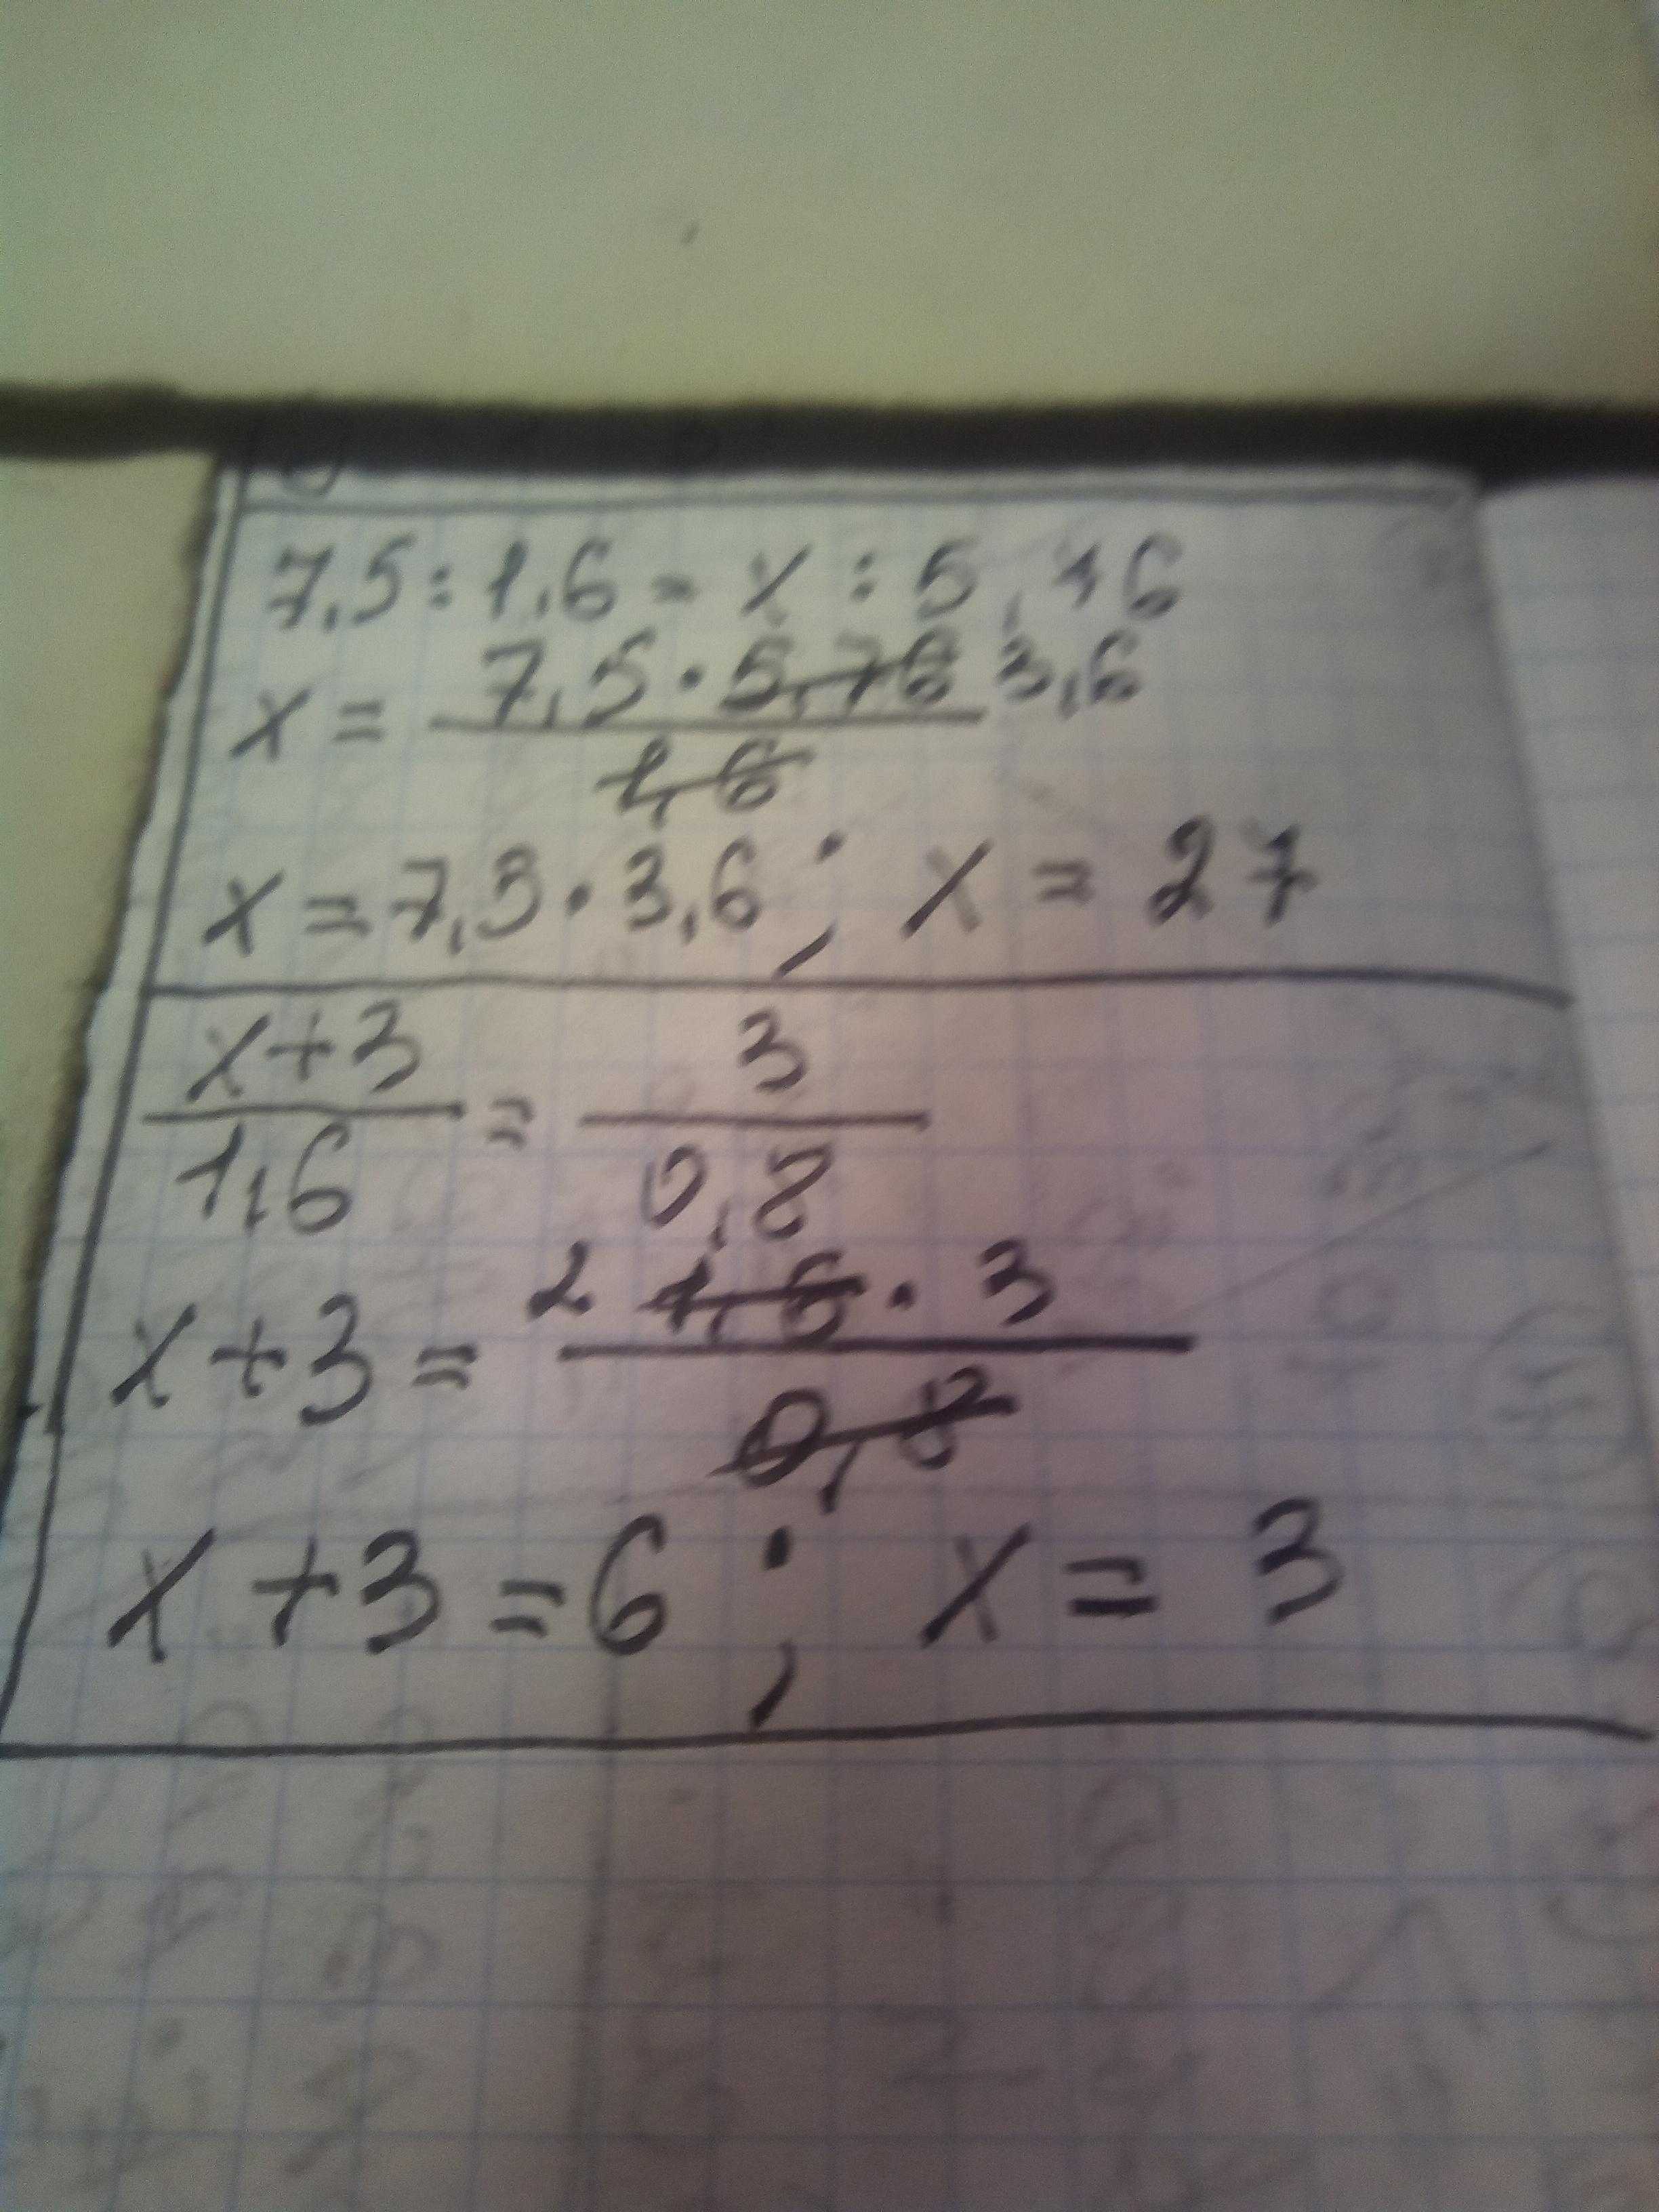 7,5 : 1,6 = x : 5,76
x = 7,5 · 5,76 3,6 / 1,6
x = 7,5 · 3,6 ; x = 27
x+3 / 1,6 = 3 / 0,8
x+3 = 2 1,6 · 3 / 0,8
x+3 = 6 ; x = 3